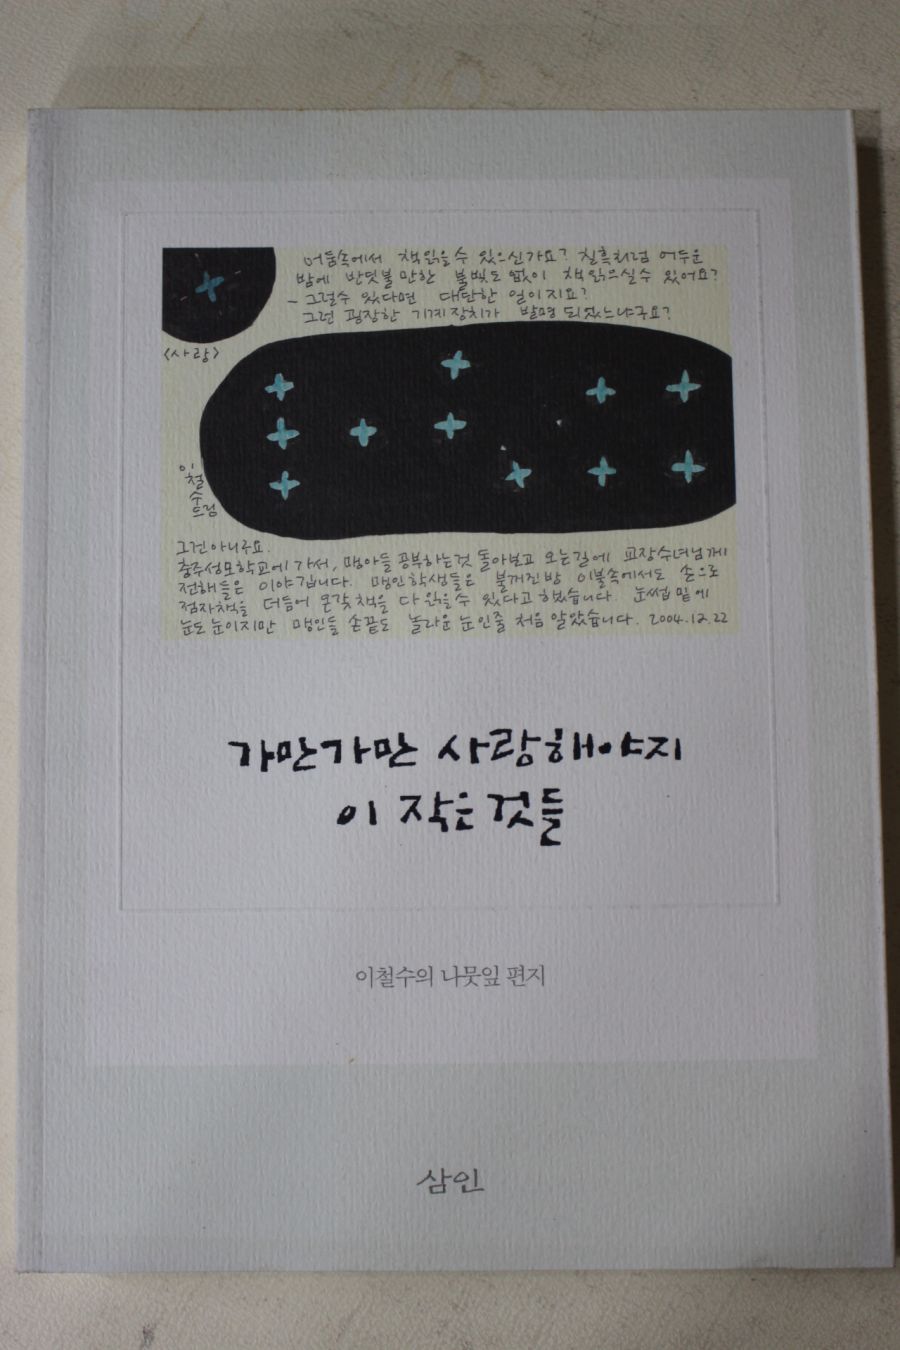 어둠속에서 책읽을수 있으신가요? 칠흑처럼 어두운
밤에 반딧불만한 불빛도 없이 책읽으실수 있어요?
- 그럴수 있다면 대단한 일이지요?
그런 굉장한 기계장치가 발명되었느냐구요?
<사랑>
이
철
수
드림
그건아니구요.
충주성모학교에 가서, 맹아들 공부하는것 돌아보고 오는길에 교장수녀님께
전해들은 이야깁니다. 맹인학생들은 불꺼진방 이불속에서도 손으로
점자책을 더듬어 온갖책을 다 읽을수 있다고 했습니다. 눈썹 밑에
눈도 눈이지만 맹인들 손끝도 놀라운 눈인줄 처음 알았습니다. 2004.12.22
가만가만 사랑해야지
이 작은 것들
이철수의 나뭇잎 편지
삼인